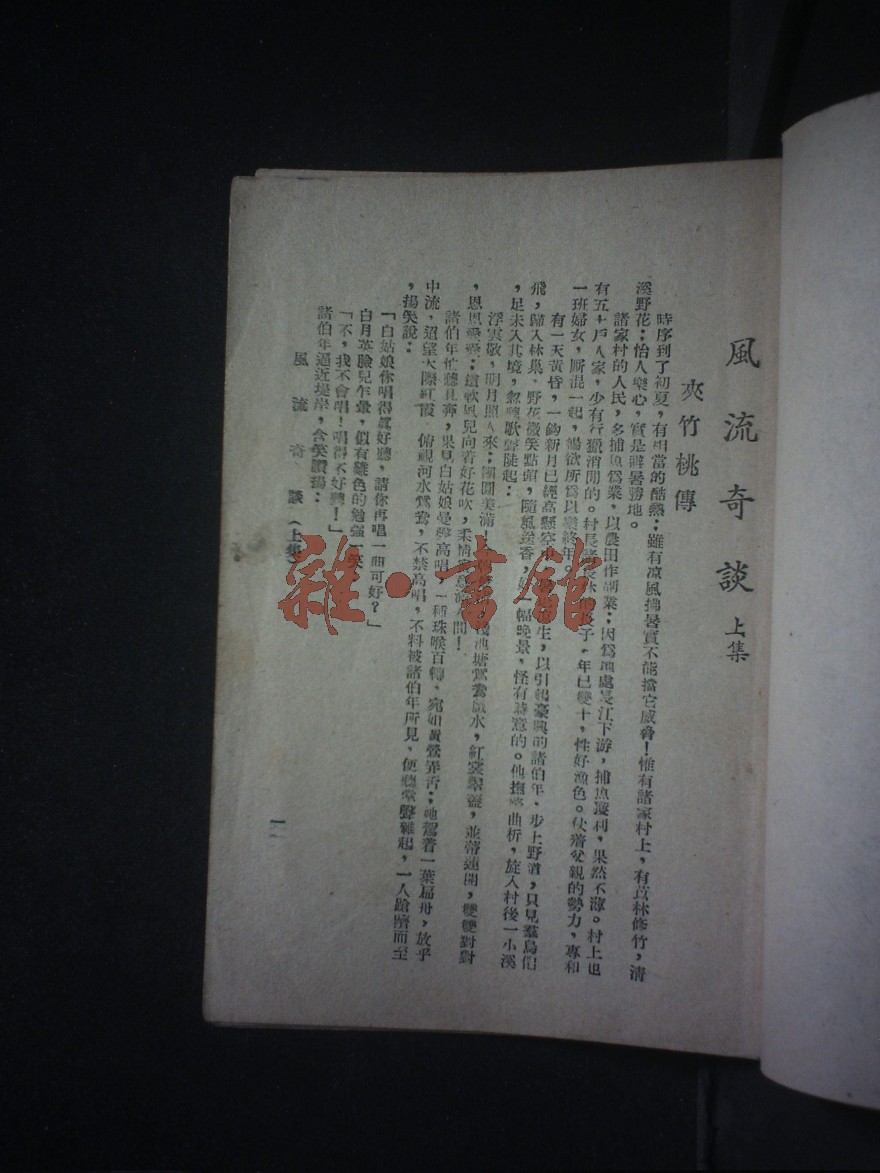 風流奇談 上集
夾竹桃傳
時序到了初夏，有相當的酷熱；雖有凉風拂暑實不能擋它威脅！惟有諸家村上，有茂林修竹，清
溪野花；怡人樂心，實是避暑勝地。
諸家村的人民，多捕魚爲業，以農田作副業；因爲地處長江下游，捕魚獲利，果然不薄。村上也
有五十戶人家，少有行獵消閒的。村長諸長林 孩子，年已雙十，性好漁色。仗着父親的勢力，專和
一班婦女，厮混一起，暢欲所爲以樂終年。
有一天黃昏，一鈎新月已經高懸空中， 生，以引起豪興的諸伯年，步上野道，只見羣鳥倡
飛，歸入林巢，野花微笑點頭，隨風送香，好一幅晚景，怪有詩意的。他撫 曲折，旋入村後一小溪
，足未入其境，忽興歌聲陡起：
浮雲散，明月照人來；團圓美滿 池塘鴛鴦戲水，紅裳翠蓋，並蒂蓮開，雙雙對對
，恩恩愛愛；這軟風兒向着好花吹，柔情 人間！
諸伯年忙聽見奔，果見白姑娘曼聲高唱，一種珠喉百轉，宛如黃鶯弄舌；她駕着一葉扁舟，放乎
中流，迢望天際紅霞，俯視河水鴛鴦，不禁高唱，不料被諸伯年所見，便聽掌聲雜起，一人蹌隮而至
，揚笑說：
「白姑娘你唱得眞好聽，請你再唱一曲可好？」
白月英臉兒乍暈，似有難色的勉强一笑
「不，我不會唱！唱得不好聽！」
諸伯年逼近堤岸，含笑讚揚：
風流奇談（上集）
一
雜·書館